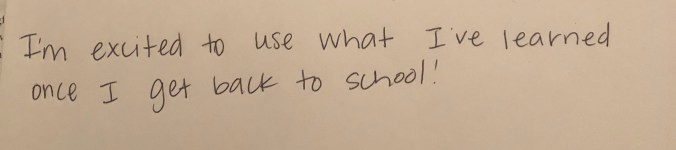 I'm excited to use what I've learned
once I get back to school!